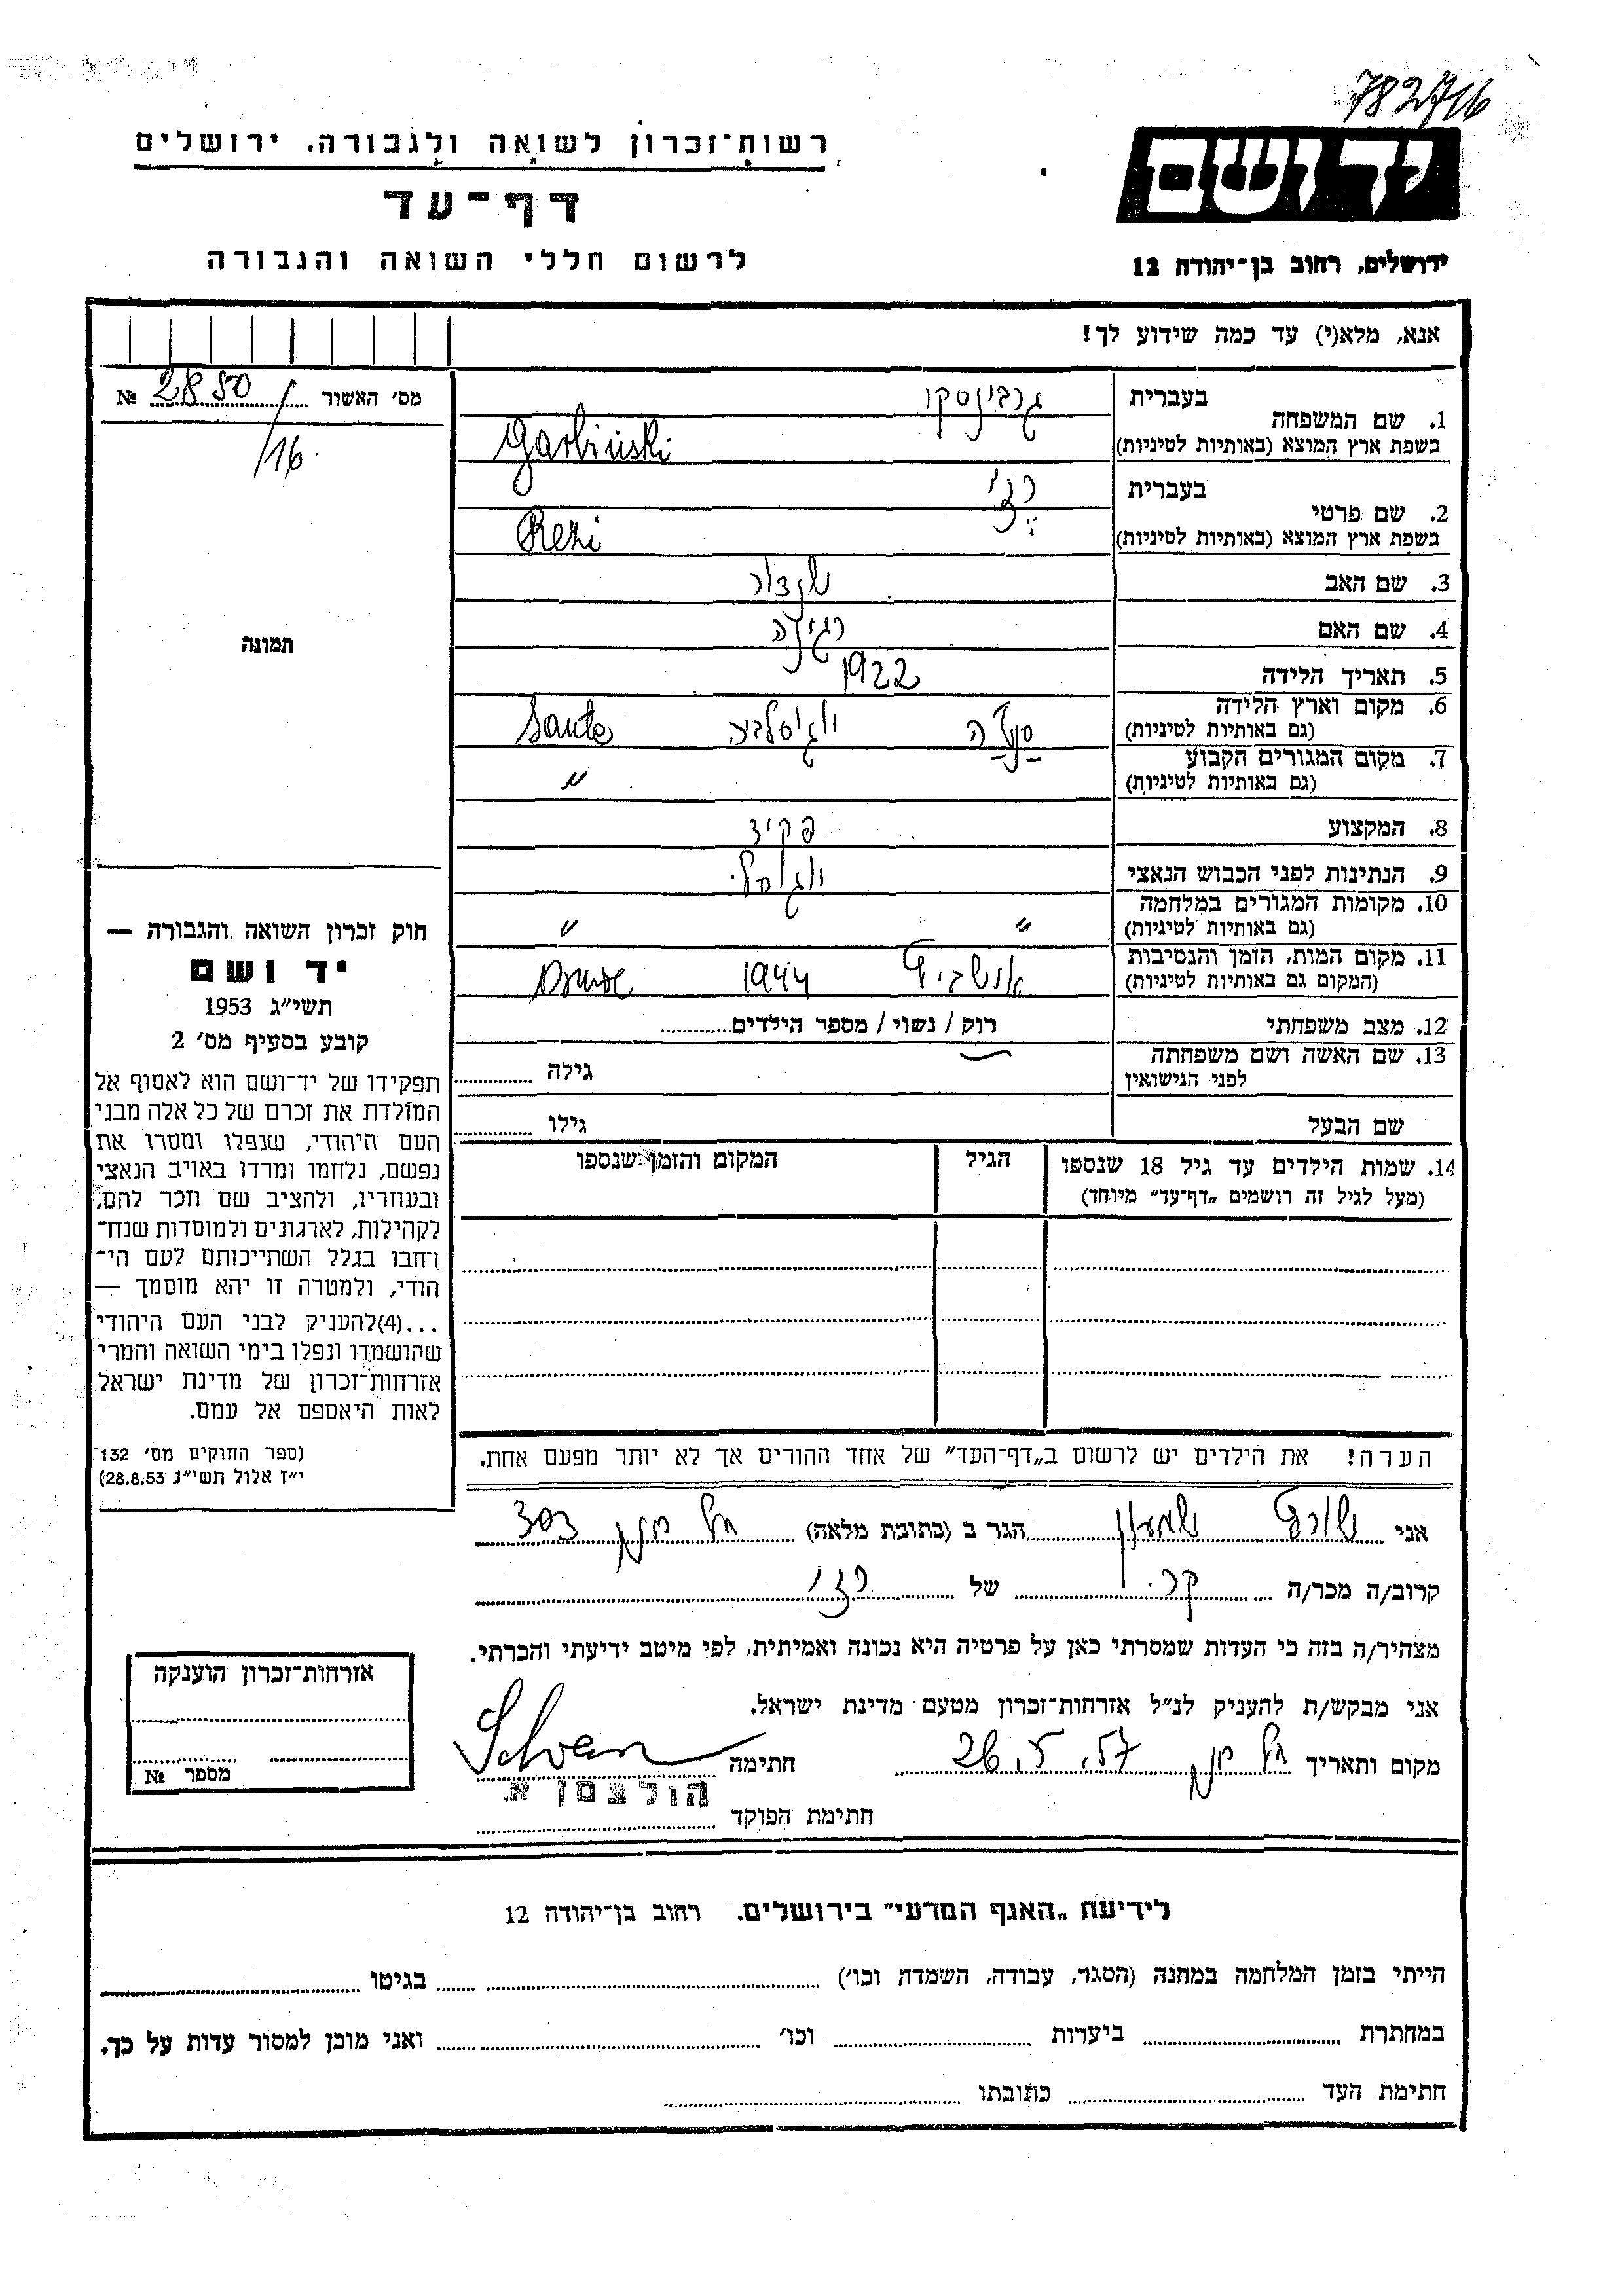 782716
רשות־זכרון לשואה ולגבורה. ירושלים
דף־עד
לרשום חללי השואה והגבורה
יד ושם
ירושלים, רחוב בן־יהודה 12
אנא, מלא(י) עד כמה שידוע לך!
מס׳ האשור 2850 №
/16
תמונה
1. שם המשפחה
בעברית גרבינסקי
בשפת ארץ המוצא (באותיות לטיניות) Garbinski
2. שם פרטי
בעברית רזי
בשפת ארץ המוצא (באותיות לטיניות) Rezi
3. שם האב
4. שם האם רגינה
5. תאריך הלידה 1922
6. מקום וארץ הלידה
(גם באותיות לטיניות) סנטה
7. מקום המגורים הקבוע
(גם באותיות לטיניות) "
8. המקצוע פקיד
9. הנתינות לפני הכבוש הנאצי
10. מקומות המגורים במלחמה
(גם באותיות לטיניות) " "
11. מקום המות, הזמן והנסיבות
(המקום גם באותיות לטיניות) אושביץ 1944
12. מצב משפחתי רוק / נשוי / מספר הילדים
13. שם האשה ושם משפחתה
לפני הנישואין גילה
שם הבעל גילו
14. שמות הילדים עד גיל 18 שנספו
(מעל לגיל זה רושמים „דף־עד" מיוחד)
הגיל
המקום והזמן שנספו
חוק זכרון השואה והגבורה —
יד ושם
תשי״ג 1953
קובע בסעיף מס׳ 2
תפקידו של יד־ושם הוא לאסוף אל
המולדת את זכרם של כל אלה מבני
העם היהודי, שנפלו ומסרו את
נפשם, נלחמו ומרדו באויב הנאצי
ובעוזריו, ולהציב שם וזכר להם,
לקהילות, לארגונים ולמוסדות שנח־
רחבו בגלל השתייכותם לעם הי־
הודי, ולמטרה זו יהא מוסמך —
...(4)להעניק לבני העם היהודי
שהושמדו ונפלו בימי השואה והמרי
אזרחות־זכרון של מדינת ישראל
לאות היאספם אל עמם.
(ספר החוקים מס׳ 132־
י״ז אלול תשי״ג 28.8.53)
הערה! את הילדים יש לרשום ב„דף־העד" של אחד ההורים אך לא יותר מפעם אחת.
אני שורץ שמעון הגר ב (כתובת מלאה) תל מונד 303
קרוב/ה מכר/ה של רזי
מצהיר/ה בזה כי העדות שמסרתי כאן על פרטיה היא נכונה ואמיתית, לפי מיטב ידיעתי והכרתי.
אני מבקש/ת להעניק לנ״ל אזרחות־זכרון מטעם מדינת ישראל.
מקום ותאריך תל מונד 26.5.57 חתימה
הולצמן א.
חתימת הפוקד
אזרחות־זכרון הוענקה
מספר №
לידיעת „האגף המדעי" בירושלים. רחוב בן־יהודה 12
הייתי בזמן המלחמה במחנה (הסגר, עבודה, השמדה וכו׳) בגיטו
במחתרת ביערות וכו׳ ואני מוכן למסור עדות על כך.
חתימת העד כתובתו